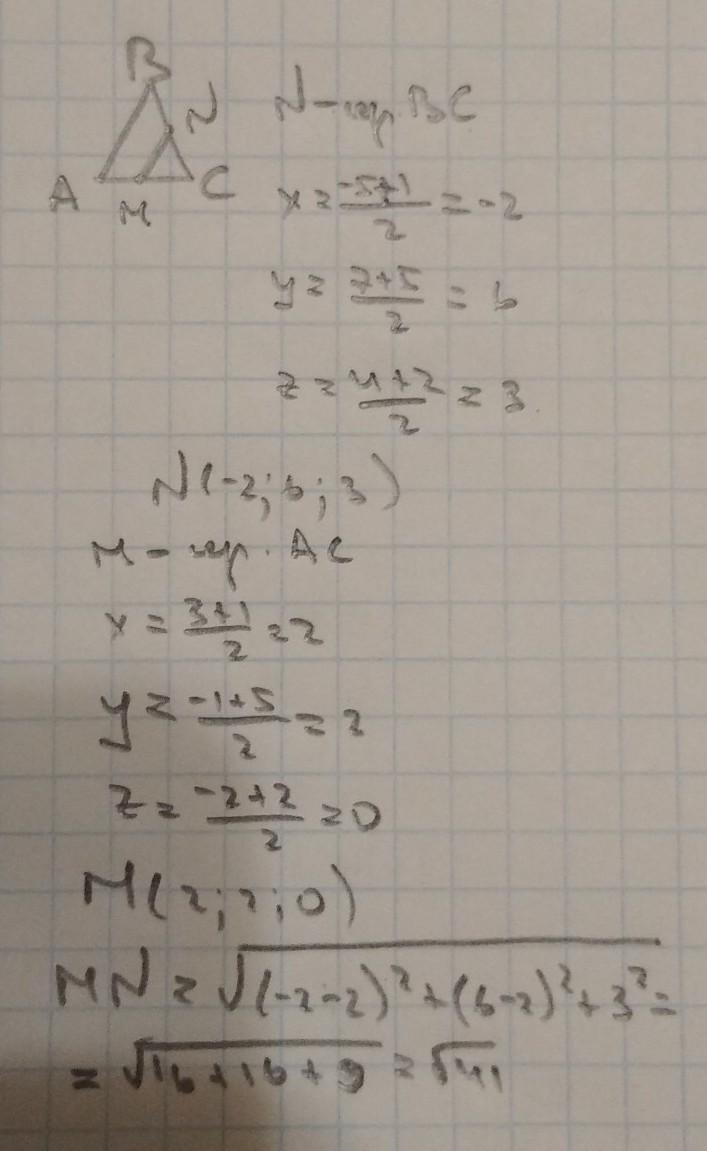 B
N
A
M
C
N - сер. BC
x = \frac{-5+1}{2} = -2
y = \frac{7+5}{2} = 6
z = \frac{4+2}{2} = 3
N(-2; 6; 3)
M - сер. AC
x = \frac{3+1}{2} = 2
y = \frac{-1+5}{2} = 2
z = \frac{-2+2}{2} = 0
M(2; 2; 0)
MN = \sqrt{(-2-2)^2 + (6-2)^2 + 3^2} =
= \sqrt{16+16+9} = \sqrt{41}